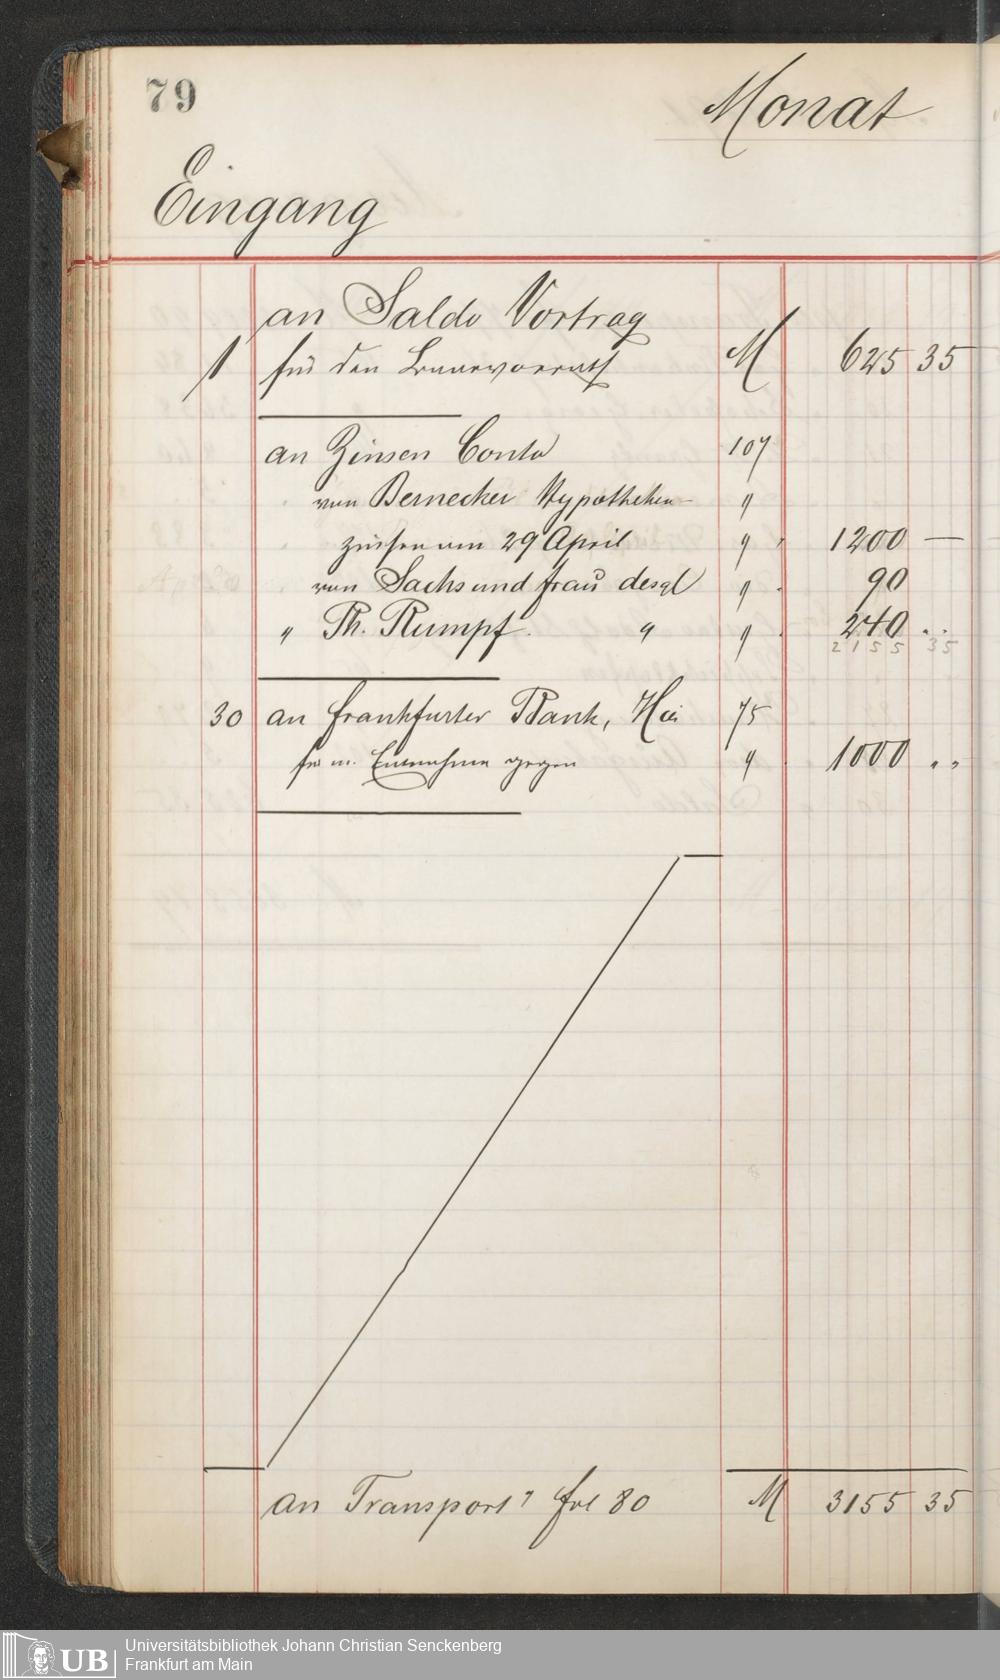 79
Monat
Eingang
an Saldo Vortrag
1 für den Baarvorrath M 625 35
an Zinsen Conto 107
von Bernecker Hypotheken- "
zinsen am 29 April " 1200 —
von Sachs und Frau desgl " 90
" Th. Rumpf " " 240 "
2155 35
30 an Frankfurter Bank, 75
m. Entnahme gegen " 1000 "
an Transport fol 80 M 3155 35
UB Universitätsbibliothek Johann Christian Senckenberg
Frankfurt am Main